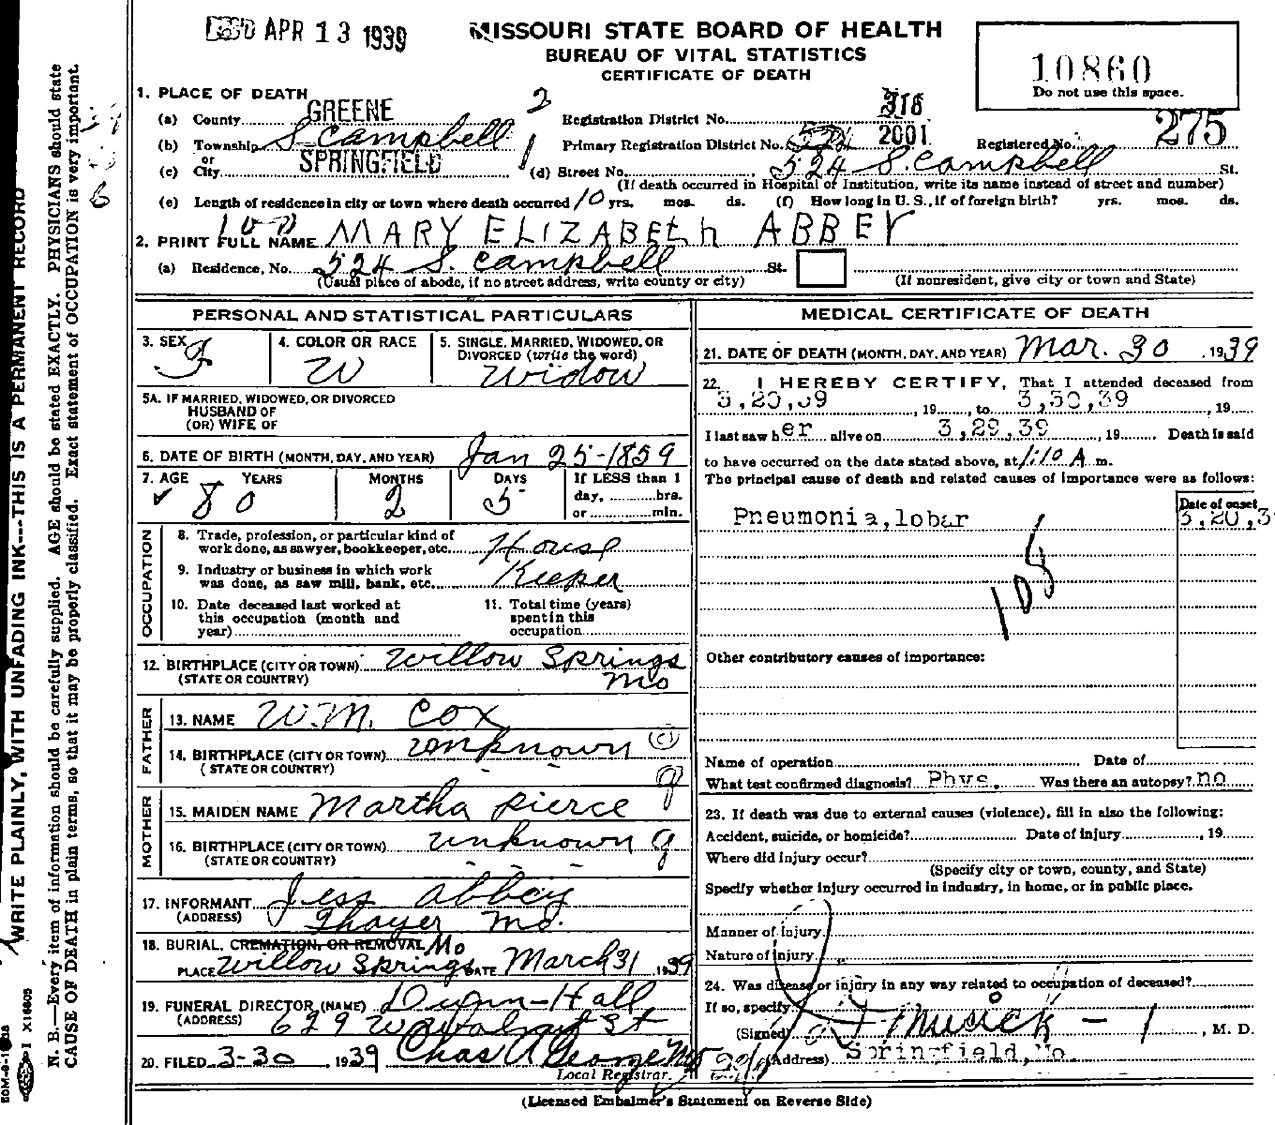 APR 13 1939
MISSOURI STATE BOARD OF HEALTH
BUREAU OF VITAL STATISTICS
CERTIFICATE OF DEATH
10860
Do not use this space.
1. PLACE OF DEATH
(a) County GREENE 2
Registration District No. 318
(b) Township S Campbell
Primary Registration District No. 2001
Registered No. 275
or
(c) City SPRINGFIELD 1
(d) Street No. 524 S. Campbell St.
(If death occurred in Hospital or Institution, write its name instead of street and number)
(e) Length of residence in city or town where death occurred 10 yrs. mos. ds. (f) How long in U. S., if of foreign birth? yrs. mos. ds.
2. PRINT FULL NAME MARY ELIZABETH ABBEY
(a) Residence, No. 524 S. Campbell St.
(Usual place of abode, if no street address, write county or city)
(If nonresident, give city or town and State)
PERSONAL AND STATISTICAL PARTICULARS
3. SEX F
4. COLOR OR RACE W
5. SINGLE, MARRIED, WIDOWED, OR DIVORCED (write the word) Widow
5A. IF MARRIED, WIDOWED, OR DIVORCED
HUSBAND OF
(OR) WIFE OF
6. DATE OF BIRTH (MONTH, DAY, AND YEAR) Jan 25-1859
7. AGE YEARS MONTHS DAYS If LESS than 1
80 2 5 day, hrs.
or min.
OCCUPATION
8. Trade, profession, or particular kind of
work done, as sawyer, bookkeeper, etc. House
9. Industry or business in which work
was done, as saw mill, bank, etc. Keeper
10. Date deceased last worked at
this occupation (month and
year)
11. Total time (years)
spent in this
occupation
12. BIRTHPLACE (CITY OR TOWN) Willow Springs
(STATE OR COUNTRY) Mo
FATHER
13. NAME W.M. Cox
14. BIRTHPLACE (CITY OR TOWN) unknown
(STATE OR COUNTRY)
MOTHER
15. MAIDEN NAME Martha Pierce
16. BIRTHPLACE (CITY OR TOWN) unknown
(STATE OR COUNTRY)
17. INFORMANT Jess Abbey
(ADDRESS) Thayer Mo.
18. BURIAL, CREMATION, OR REMOVAL Mo
PLACE Willow Springs DATE March 31, 1939
19. FUNERAL DIRECTOR (NAME) Dunn-Hall
(ADDRESS) 629 St
20. FILED 3-30, 1939 Chas A George
Local Registrar.
MEDICAL CERTIFICATE OF DEATH
21. DATE OF DEATH (MONTH, DAY, AND YEAR) Mar. 30, 1939
22. I HEREBY CERTIFY, That I attended deceased from
3,20,39, 19 to 3,30,39, 19
I last saw her alive on 3,29,39, 19 Death is said
to have occurred on the date stated above, at 1:10 A m.
The principal cause of death and related causes of importance were as follows:
Date of onset
Pneumonia, lobar 3,20,3
108
Other contributory causes of importance:
Name of operation Date of
What test confirmed diagnosis? Phys. Was there an autopsy? no
23. If death was due to external causes (violence), fill in also the following:
Accident, suicide, or homicide? Date of injury , 19
Where did injury occur?
(Specify city or town, county, and State)
Specify whether injury occurred in industry, in home, or in public place.
Manner of injury
Nature of injury
24. Was disease or injury in any way related to occupation of deceased?
If so, specify
(Signed) Musick , M. D.
(Address) Springfield, Mo.
(Licensed Embalmer's Statement on Reverse Side)
WRITE PLAINLY, WITH UNFADING INK---THIS IS A PERMANENT RECORD
N. B.—Every item of information should be carefully supplied. AGE should be stated EXACTLY. PHYSICIANS should state
CAUSE OF DEATH in plain terms, so that it may be properly classified. Exact statement of OCCUPATION is very important.
I X16605